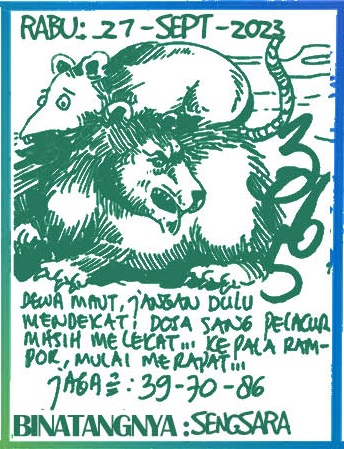 RABU: 27-SEPT-2023
DEWA MAUT, JANGAN DULU
MENDEKAT! DOSA SANG PELACUR
MASIH MELEKAT... KEPALA RAM-
POK, MULAI MERAPAT...
JAGA2 : 39-70-86
BINATANGNYA : SENGSARA